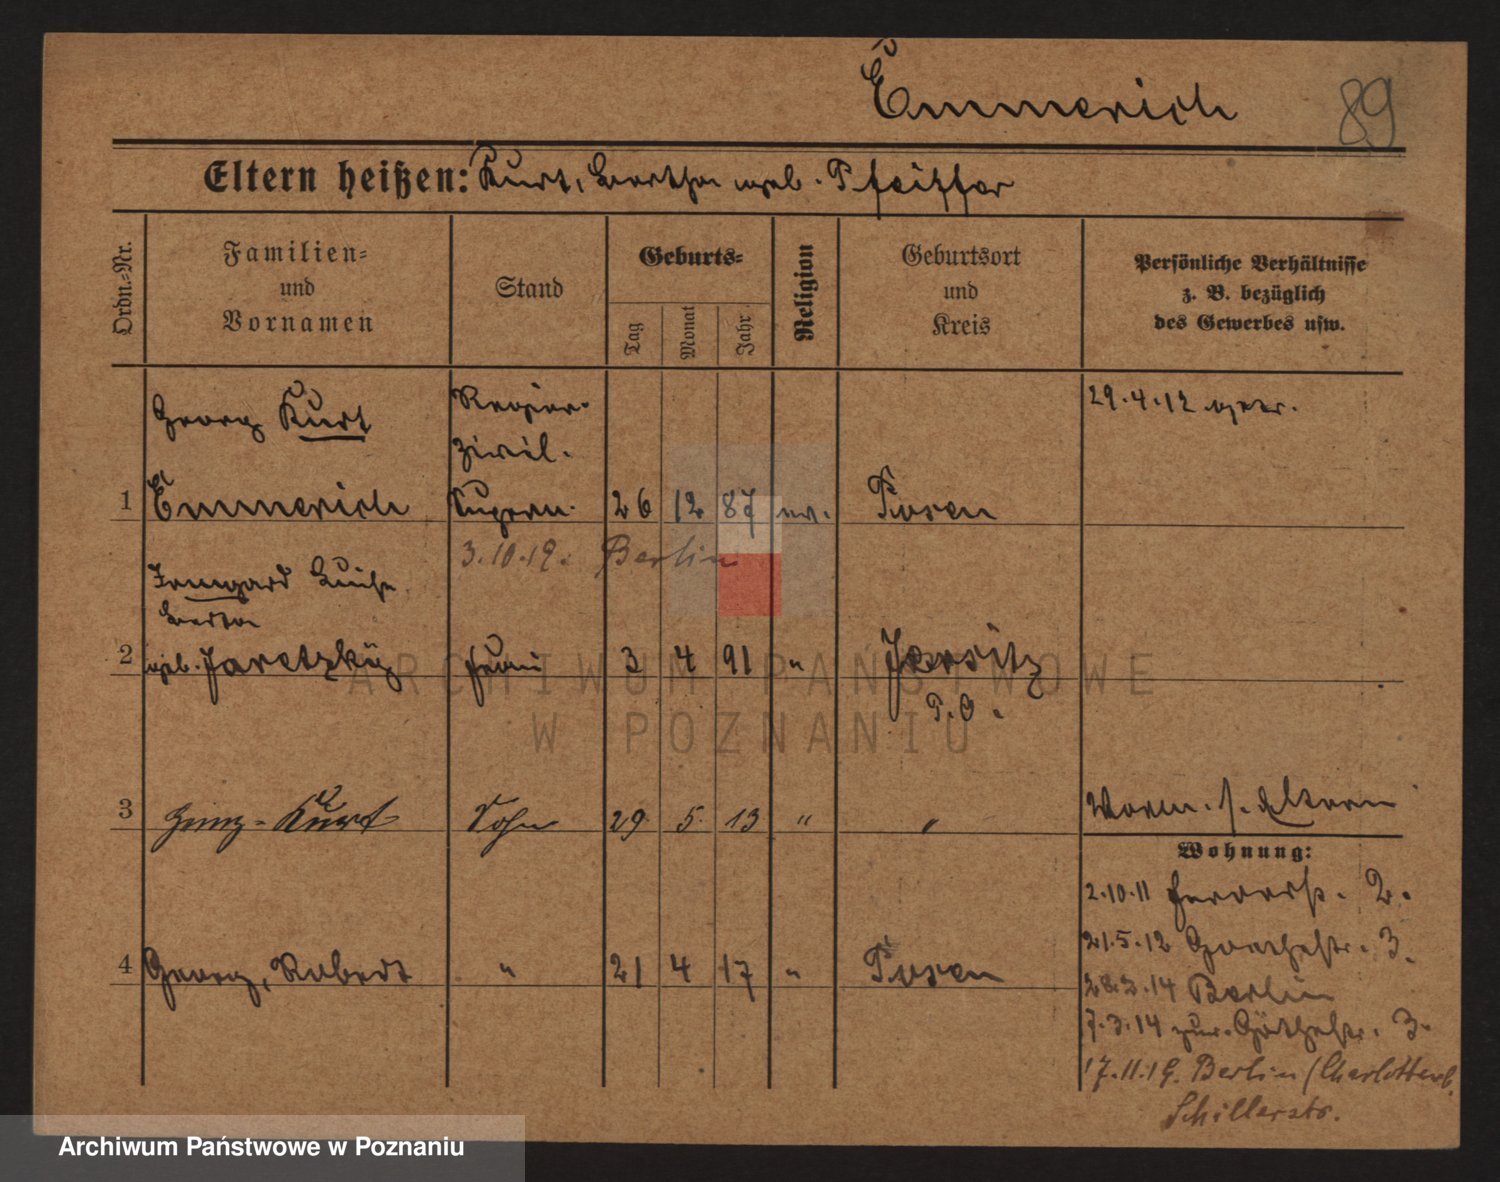 Emmerich
89
Eltern heißen: Kurt, Bertha geb. Pfeiffer
Ordn.-Nr.
Familien-
und
Vornamen
Stand
Geburts-
Tag
Monat
Jahr
Religion
Geburtsort
und
Kreis
Persönliche Verhältnisse
z. B. bezüglich
des Gewerbes usw.
Georg Kurt
Regier.
Zivil.
29.4.12
1 Emmerich Supern. 26 12 87 ev. Posen
3.10.19. Berlin
Irmgard Luise
Berta
2 geb. Jaretzky Frau 3 4 91 " Jersitz
P. O.
3 Heinz-Kurt Sohn 29 5 13 " "
Vorm. s. Eltern
Wohnung:
2.10.11 2.
21.5.12 Goethestr. 3.
4 Georg, Robert " 21 4 17 " Posen
28.2.14 Berlin
7.3.14 zur. Göthestr. 3.
17.11.19. Berlin (Charlottenb.
Schillerstr.
ARCHIWUM PAŃSTWOWE
W POZNANIU
Archiwum Państwowe w Poznaniu